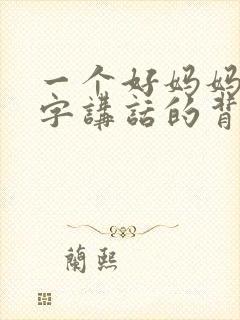 一个好妈妈
字講話的背
蘭熙